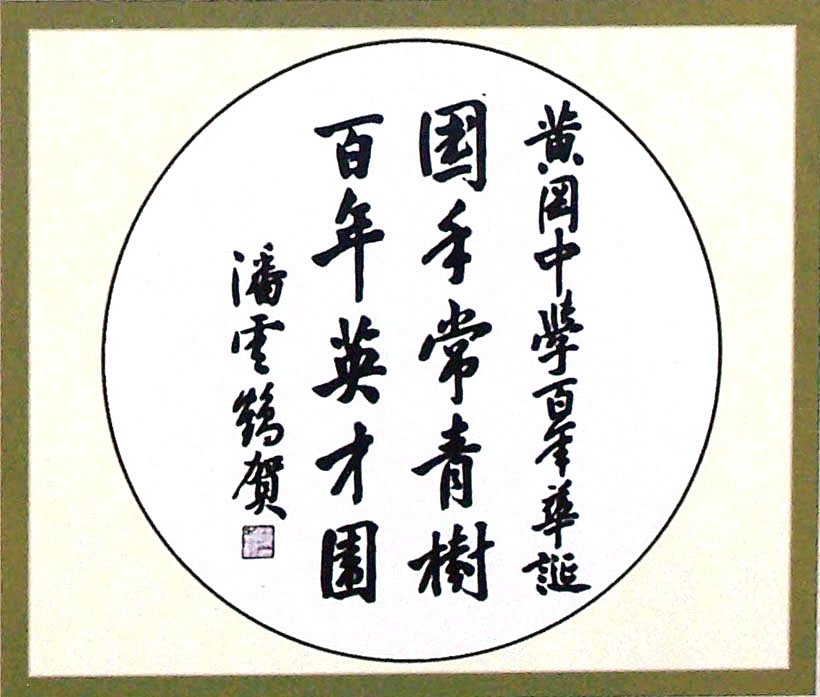 黄岡中學百年華誕
国手常青樹
百年英才園
潘雲鶴賀